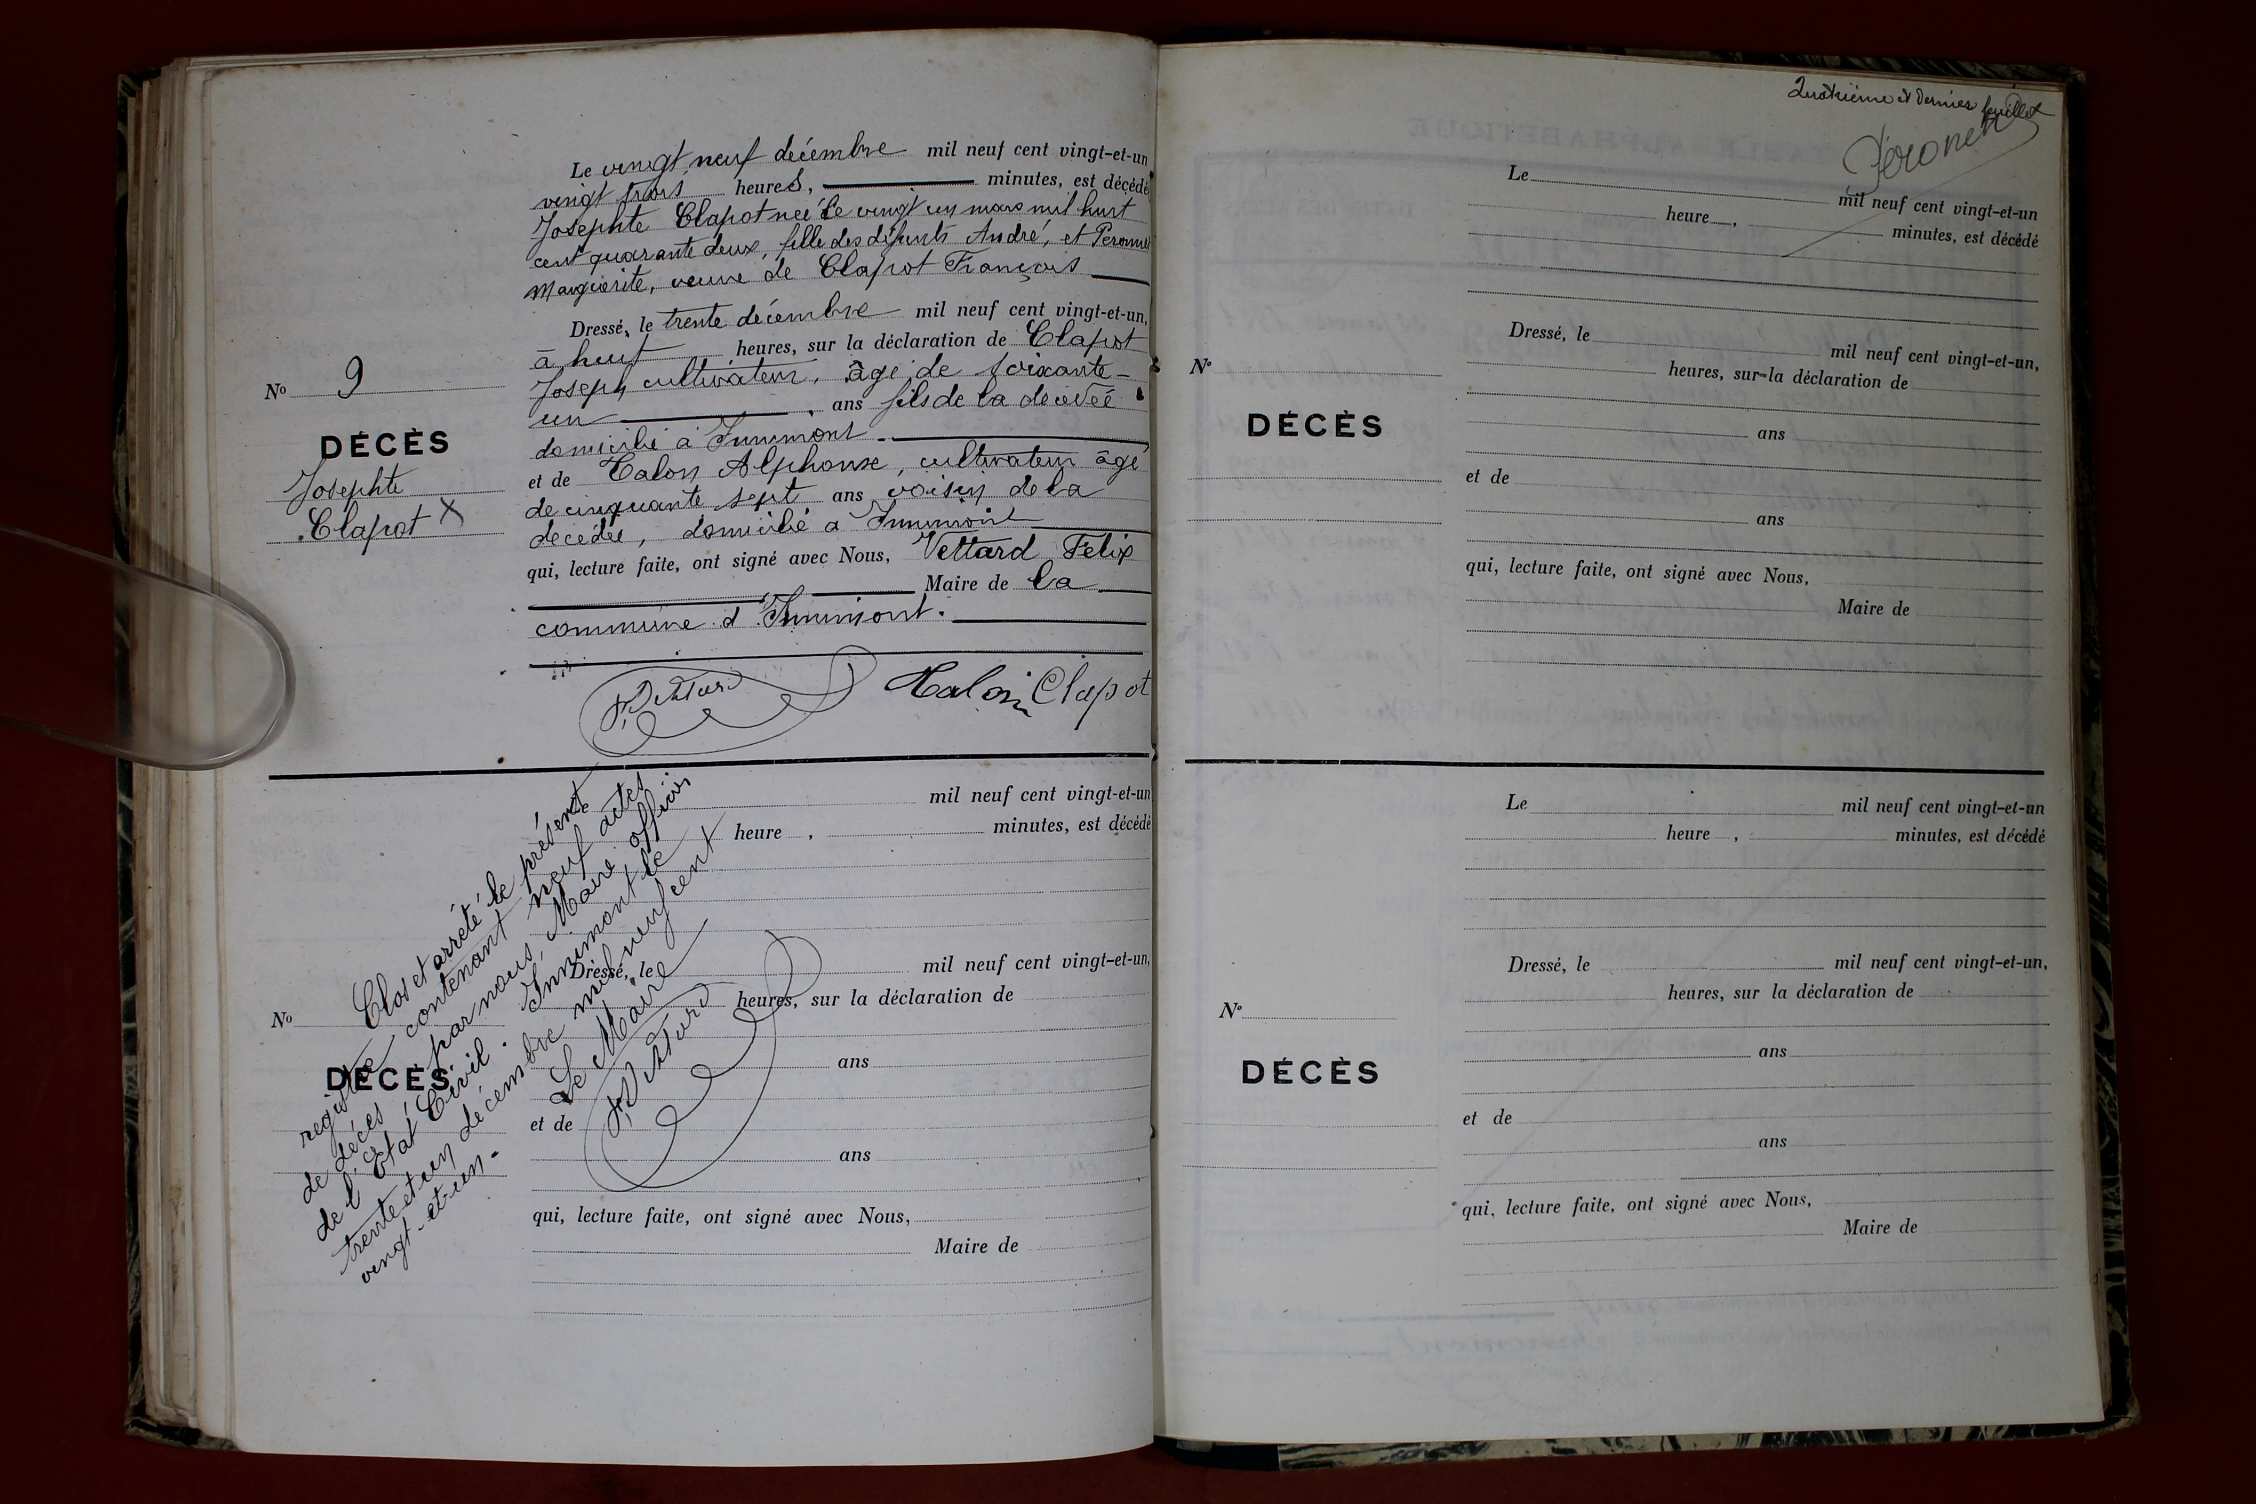 Le vingt neuf décembre mil neuf cent vingt-et-un
vingt trois heures, minutes, est décédé
Josephte Clapot neé le vingt un mars mil huit
cent quarante deux, fille des défunts André, et Peronnet
Marguerite, veuve de Clapot François
Dressé, le trente décembre mil neuf cent vingt-et-un,
à huit heures, sur la déclaration de Clapot
Joseph cultivateur, âgé de soixante-
un ans fils de la décédée
domicilié à Innimont
et de Talon Alphonse, cultivateur âgé
de cinquante sept ans voisin de la
décédée, domicilié à Innimont
qui, lecture faite, ont signé avec Nous, Vettard Félix
Maire de la
commune d'Innimont.
F. Vettard Talon Clapot
No 9
DÉCÈS
Josephte
Clapot X
mil neuf cent vingt-et-un
heure , minutes, est décédé
Dressé, le mil neuf cent vingt-et-un,
heures, sur la déclaration de
No
DÉCÈS
ans
et de
ans
qui, lecture faite, ont signé avec Nous,
Maire de
Clos et arrêté le présent
registre contenant neuf actes
de décès, par nous, Maire officier
de l'Etat Civil. Innimont le
trente et un décembre mil neuf cent
vingt-et-un.
Le Maire
F. Vettard
Quatrième et dernier feuillet
Péronet
Le mil neuf cent vingt-et-un
heure , minutes, est décédé
Dressé, le mil neuf cent vingt-et-un,
No
heures, sur la déclaration de
DÉCÈS
ans
et de
ans
qui, lecture faite, ont signé avec Nous,
Maire de
Le mil neuf cent vingt-et-un
heure , minutes, est décédé
Dressé, le mil neuf cent vingt-et-un,
heures, sur la déclaration de
No
ans
DÉCÈS
et de
ans
qui, lecture faite, ont signé avec Nous,
Maire de